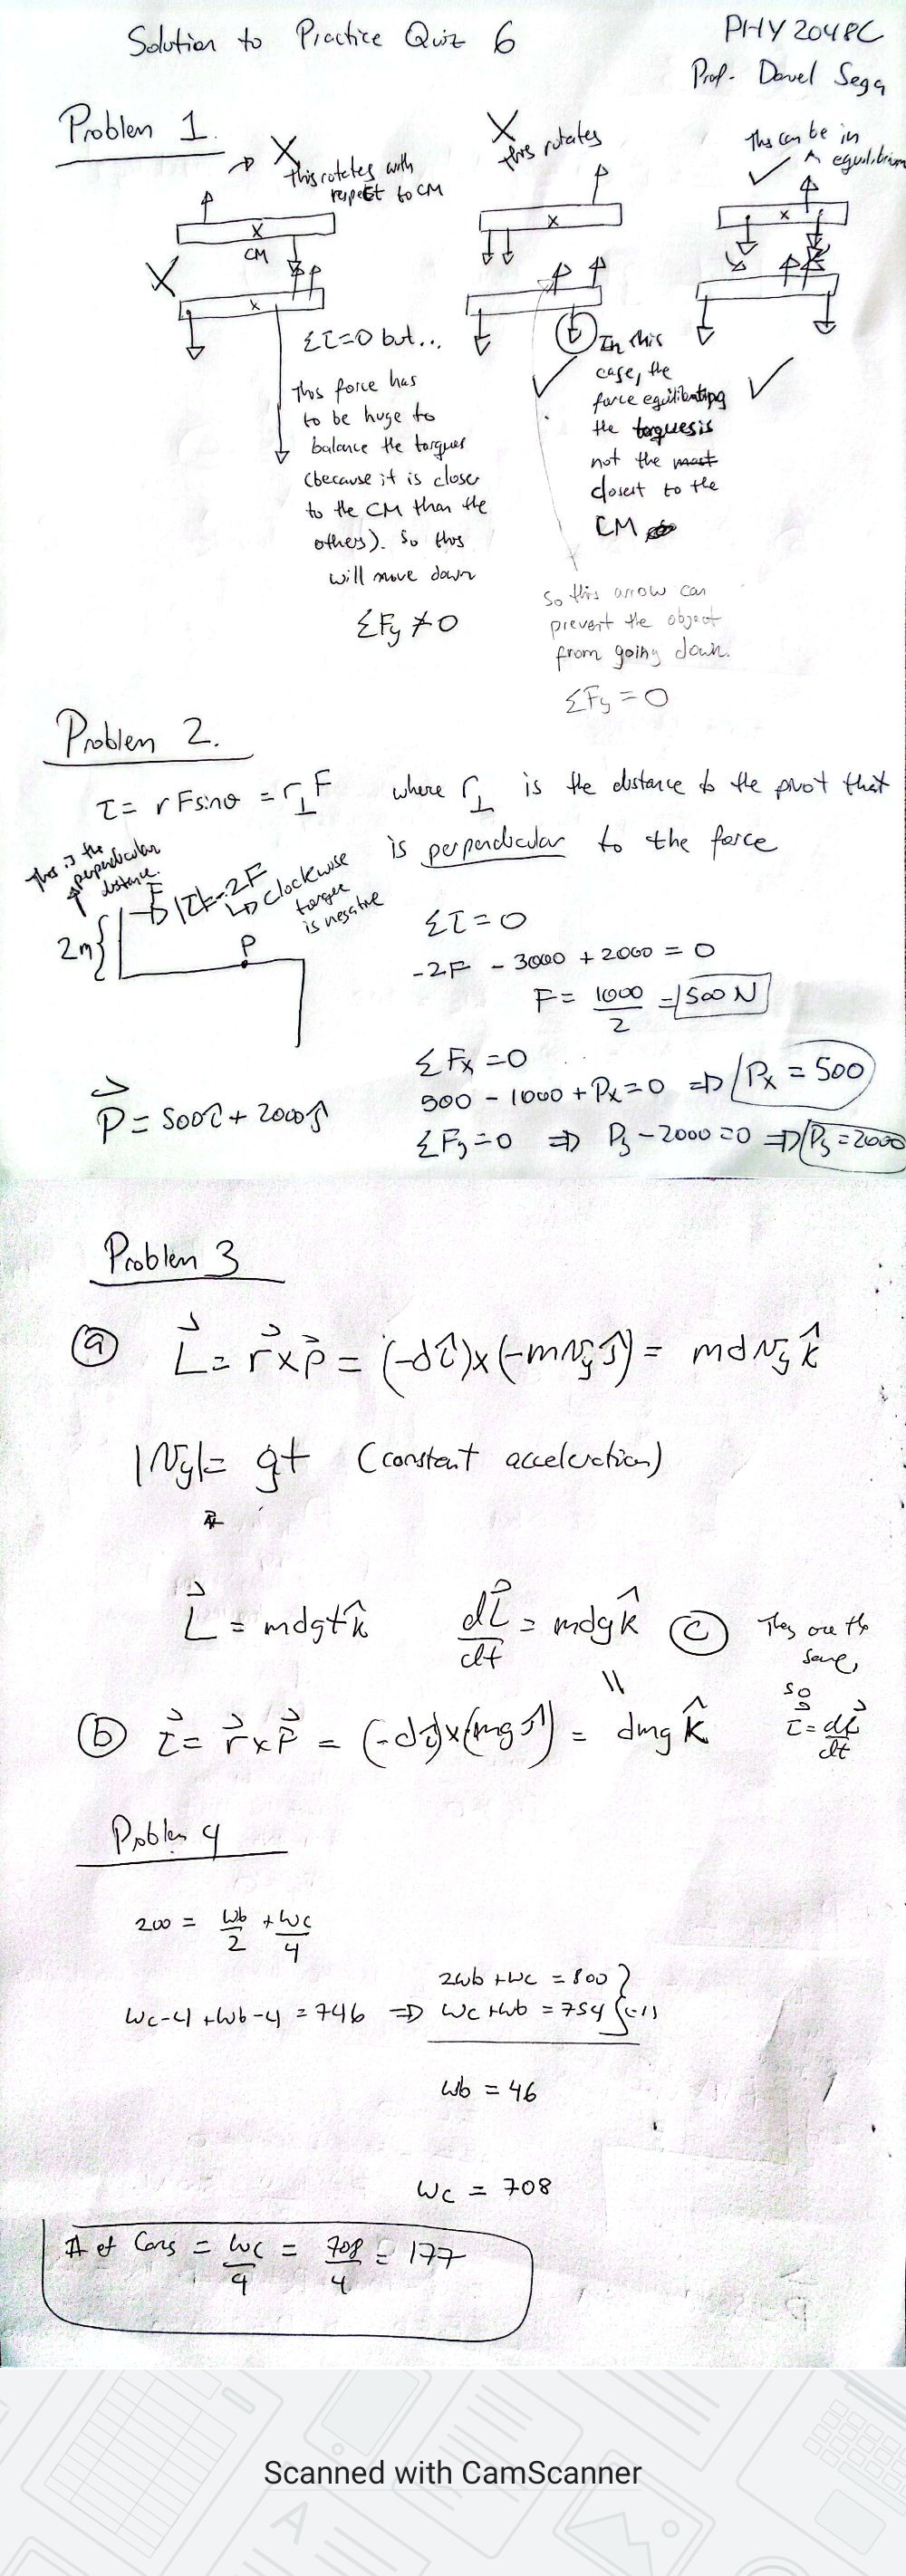 Solution to Practice Quiz 6
PHY 2048C
Prof. Darel Sega
Problem 1.
X
This rotates with
respect to CM
X
this rotates
This can be in
equilibrium
✓
x
CM
x
x
X
x
ΣT=0 but...
This force has
to be huge to
balance the torques
(because it is closer
to the CM than the
others). So this
will move down
ΣFy ≠ 0
✓
In this
case, the
force equilibrating
the torques is
not the most
closest to the
CM
✓
So this arrow can
prevent the object
from going down.
ΣFy = 0
Problem 2.
τ = r F sinθ = r⊥ F where r⊥ is the distance to the pivot that
is perpendicular to the force
This is the
perpendicular
distance.
F
|τ|=-2F
clockwise
torque
is negative
2m
P
Στ = 0
-2F - 3000 + 2000 = 0
F = 1000/2 = 500 N
ΣFx = 0
500 - 1000 + Px = 0 ⇒ Px = 500
P = 500î + 2000ĵ
ΣFy = 0 ⇒ Py - 2000 = 0 ⇒ Py = 2000
Problem 3
a L = r x p = (-dî) x (-m vy ĵ) = m d vy k̂
|vy| = gt (constant acceleration)
L = mdgt k̂ dL/dt = mdg k̂ c They are the
same,
so
τ = dL/dt
b τ = r x F = (-dî) x (mg ĵ) = dmg k̂
Problem 4
200 = wb/2 + wc/4
2wb + wc = 800
wc-4 + wb-4 = 746 ⇒ wc + wb = 754 (-1)
wb = 46
wc = 708
# of Cans = wc/4 = 708/4 = 177
Scanned with CamScanner